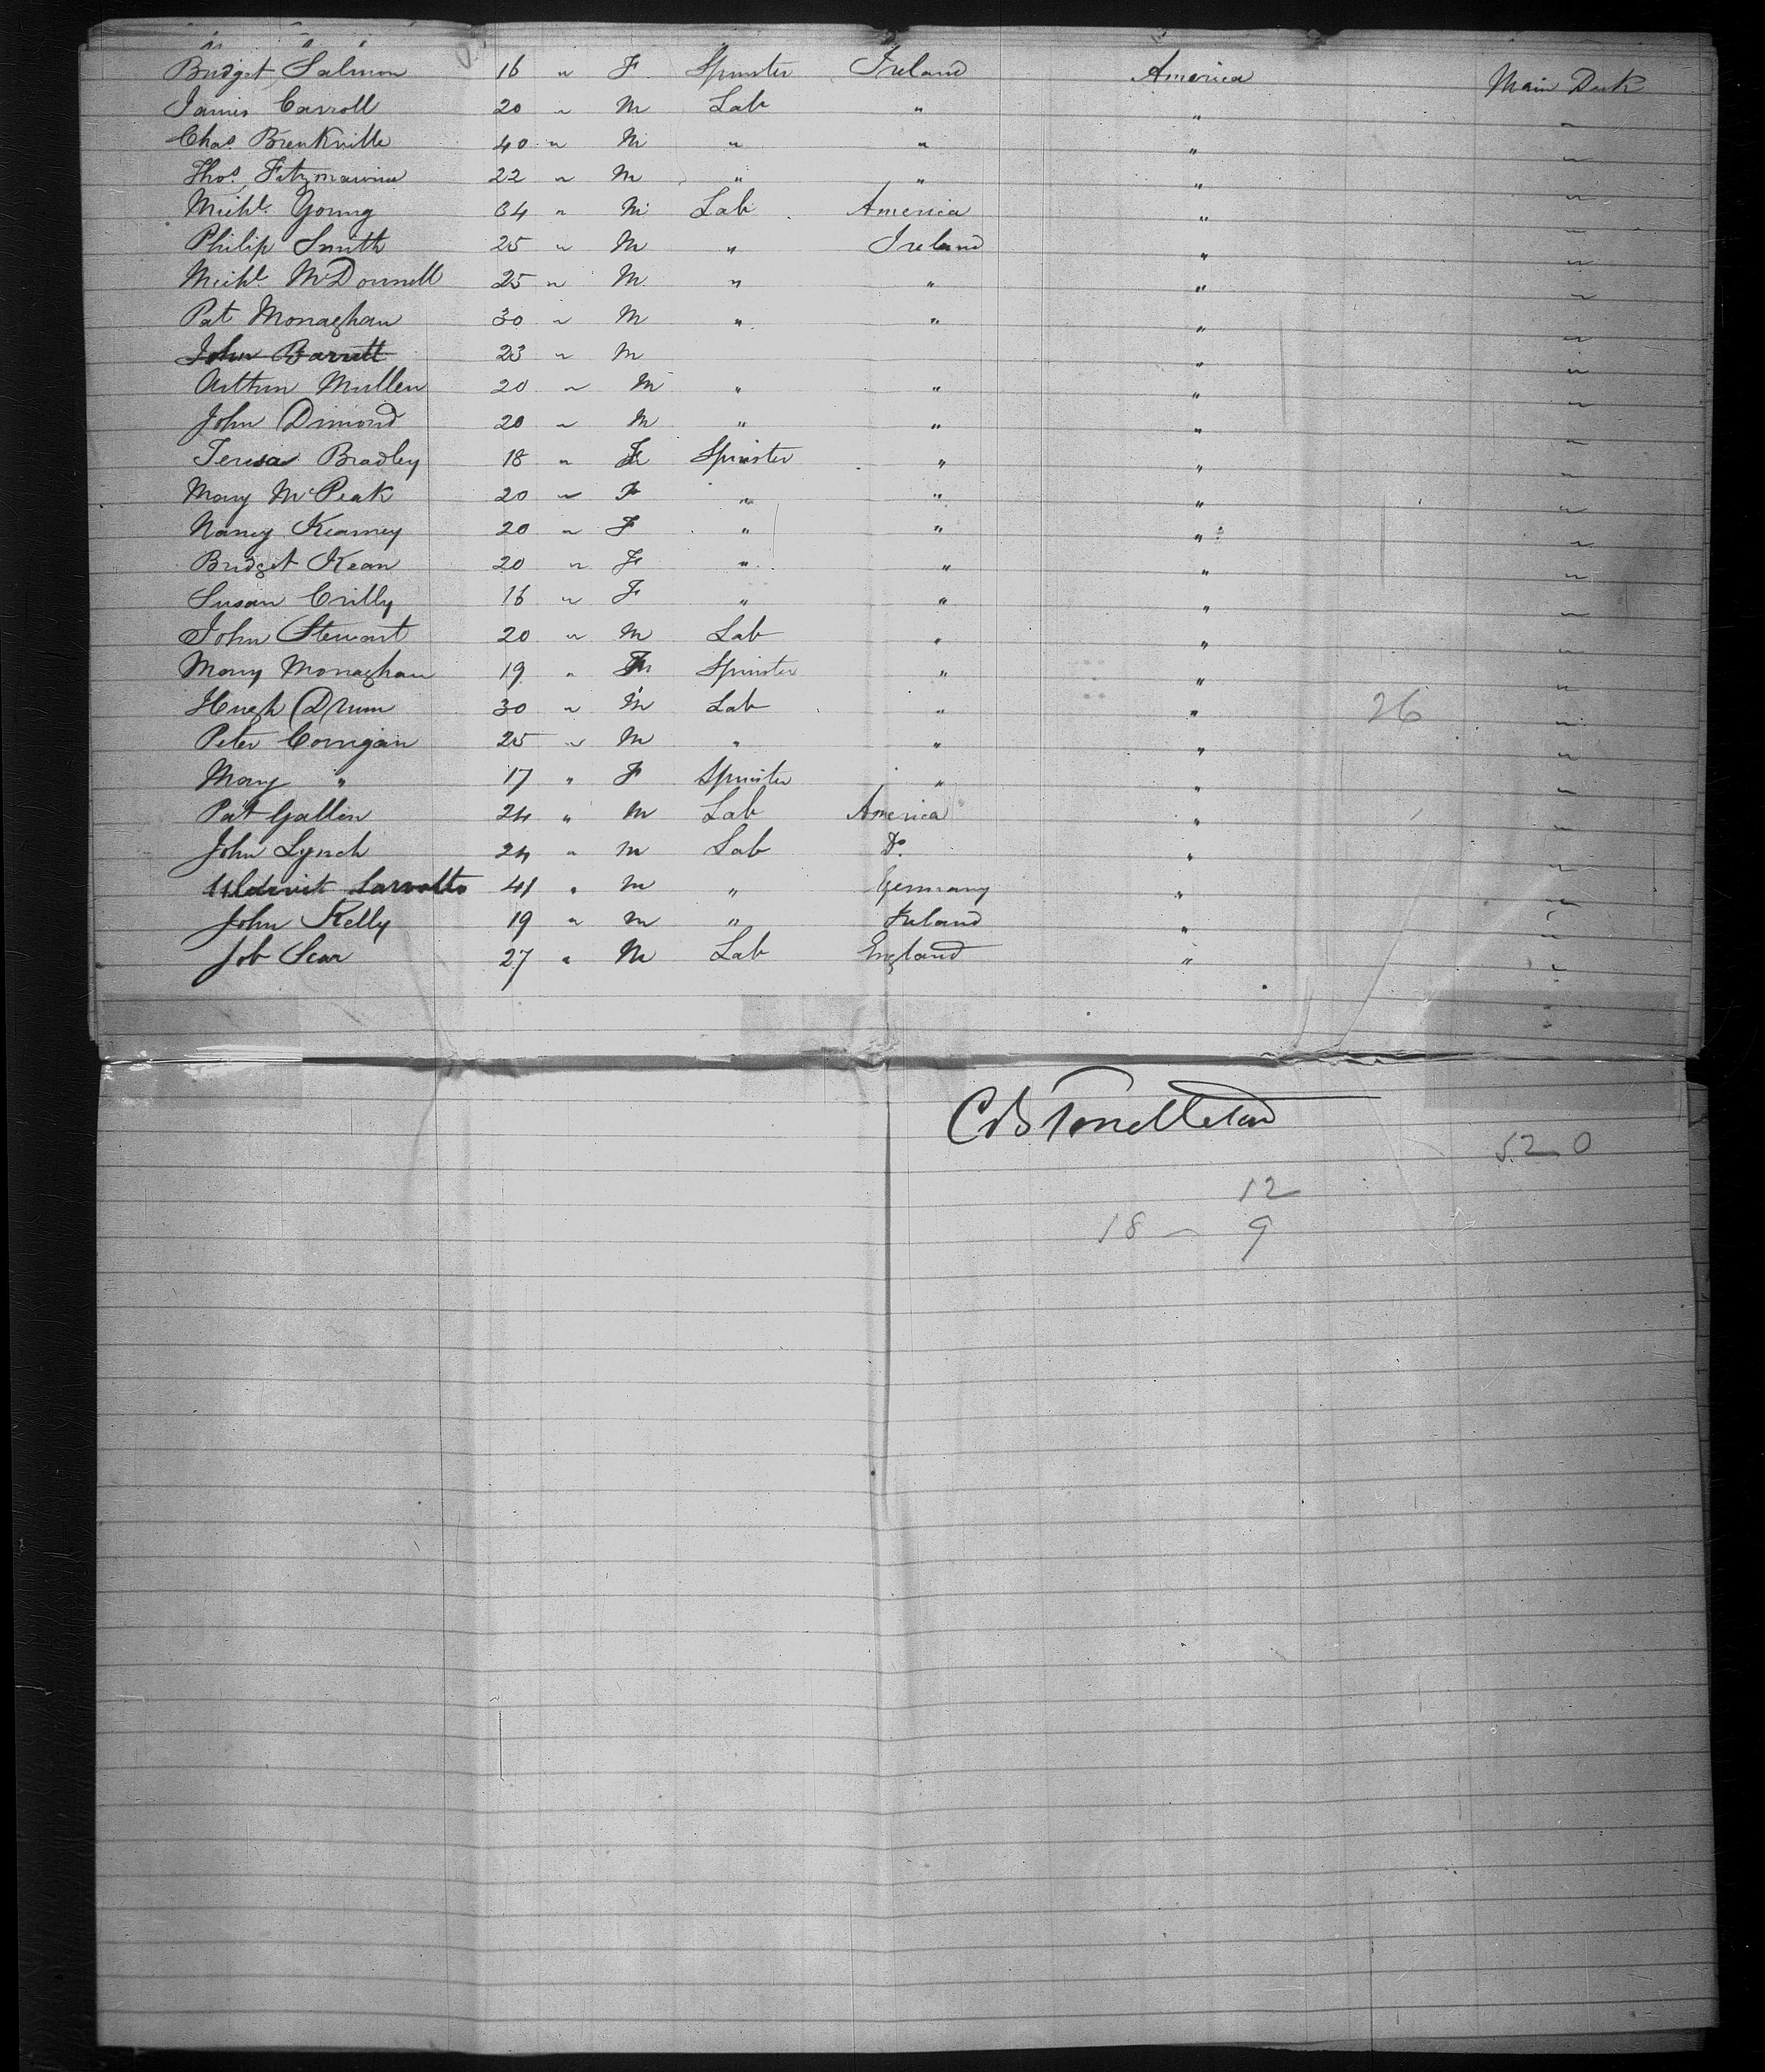 Bridget Salmon 16 " F Spinster Ireland America Main Deck
James Carroll 20 " M Lab " " "
Chas Brenkville 40 " M " " " "
Thos. Fitzmaurice 22 " M " " " "
Michl. Young 34 " M Lab America " "
Philip Smith 25 " M " Ireland " "
Michl McDonnell 25 " M " " " "
Pat Monaghan 30 " M " " " "
John Barrett 23 " M " "
Arthur Mullen 20 " M " " " "
John Dimond 20 " M " " " "
Teresa Bradley 18 " F Spinster " " "
Mary McPeak 20 " F " " " "
Nancy Kearney 20 " F " " " "
Bridget Kean 20 " F " " " "
Susan Crilly 16 " F " " " "
John Stewart 20 " M Lab " " "
Mary Monaghan 19 " F Spinster " " "
Hugh Drum 30 " M Lab " " 26 "
Peter Corrigan 25 " M " " " "
Mary " 17 " F Spinster " " "
Pat Gallen 24 " M Lab America " "
John Lynch 24 " M Lab Do. " "
41 " M " Germany " "
John Kelly 19 " M " Ireland " "
Job Scar 27 " M Lab England " "
520
12
18 - 9